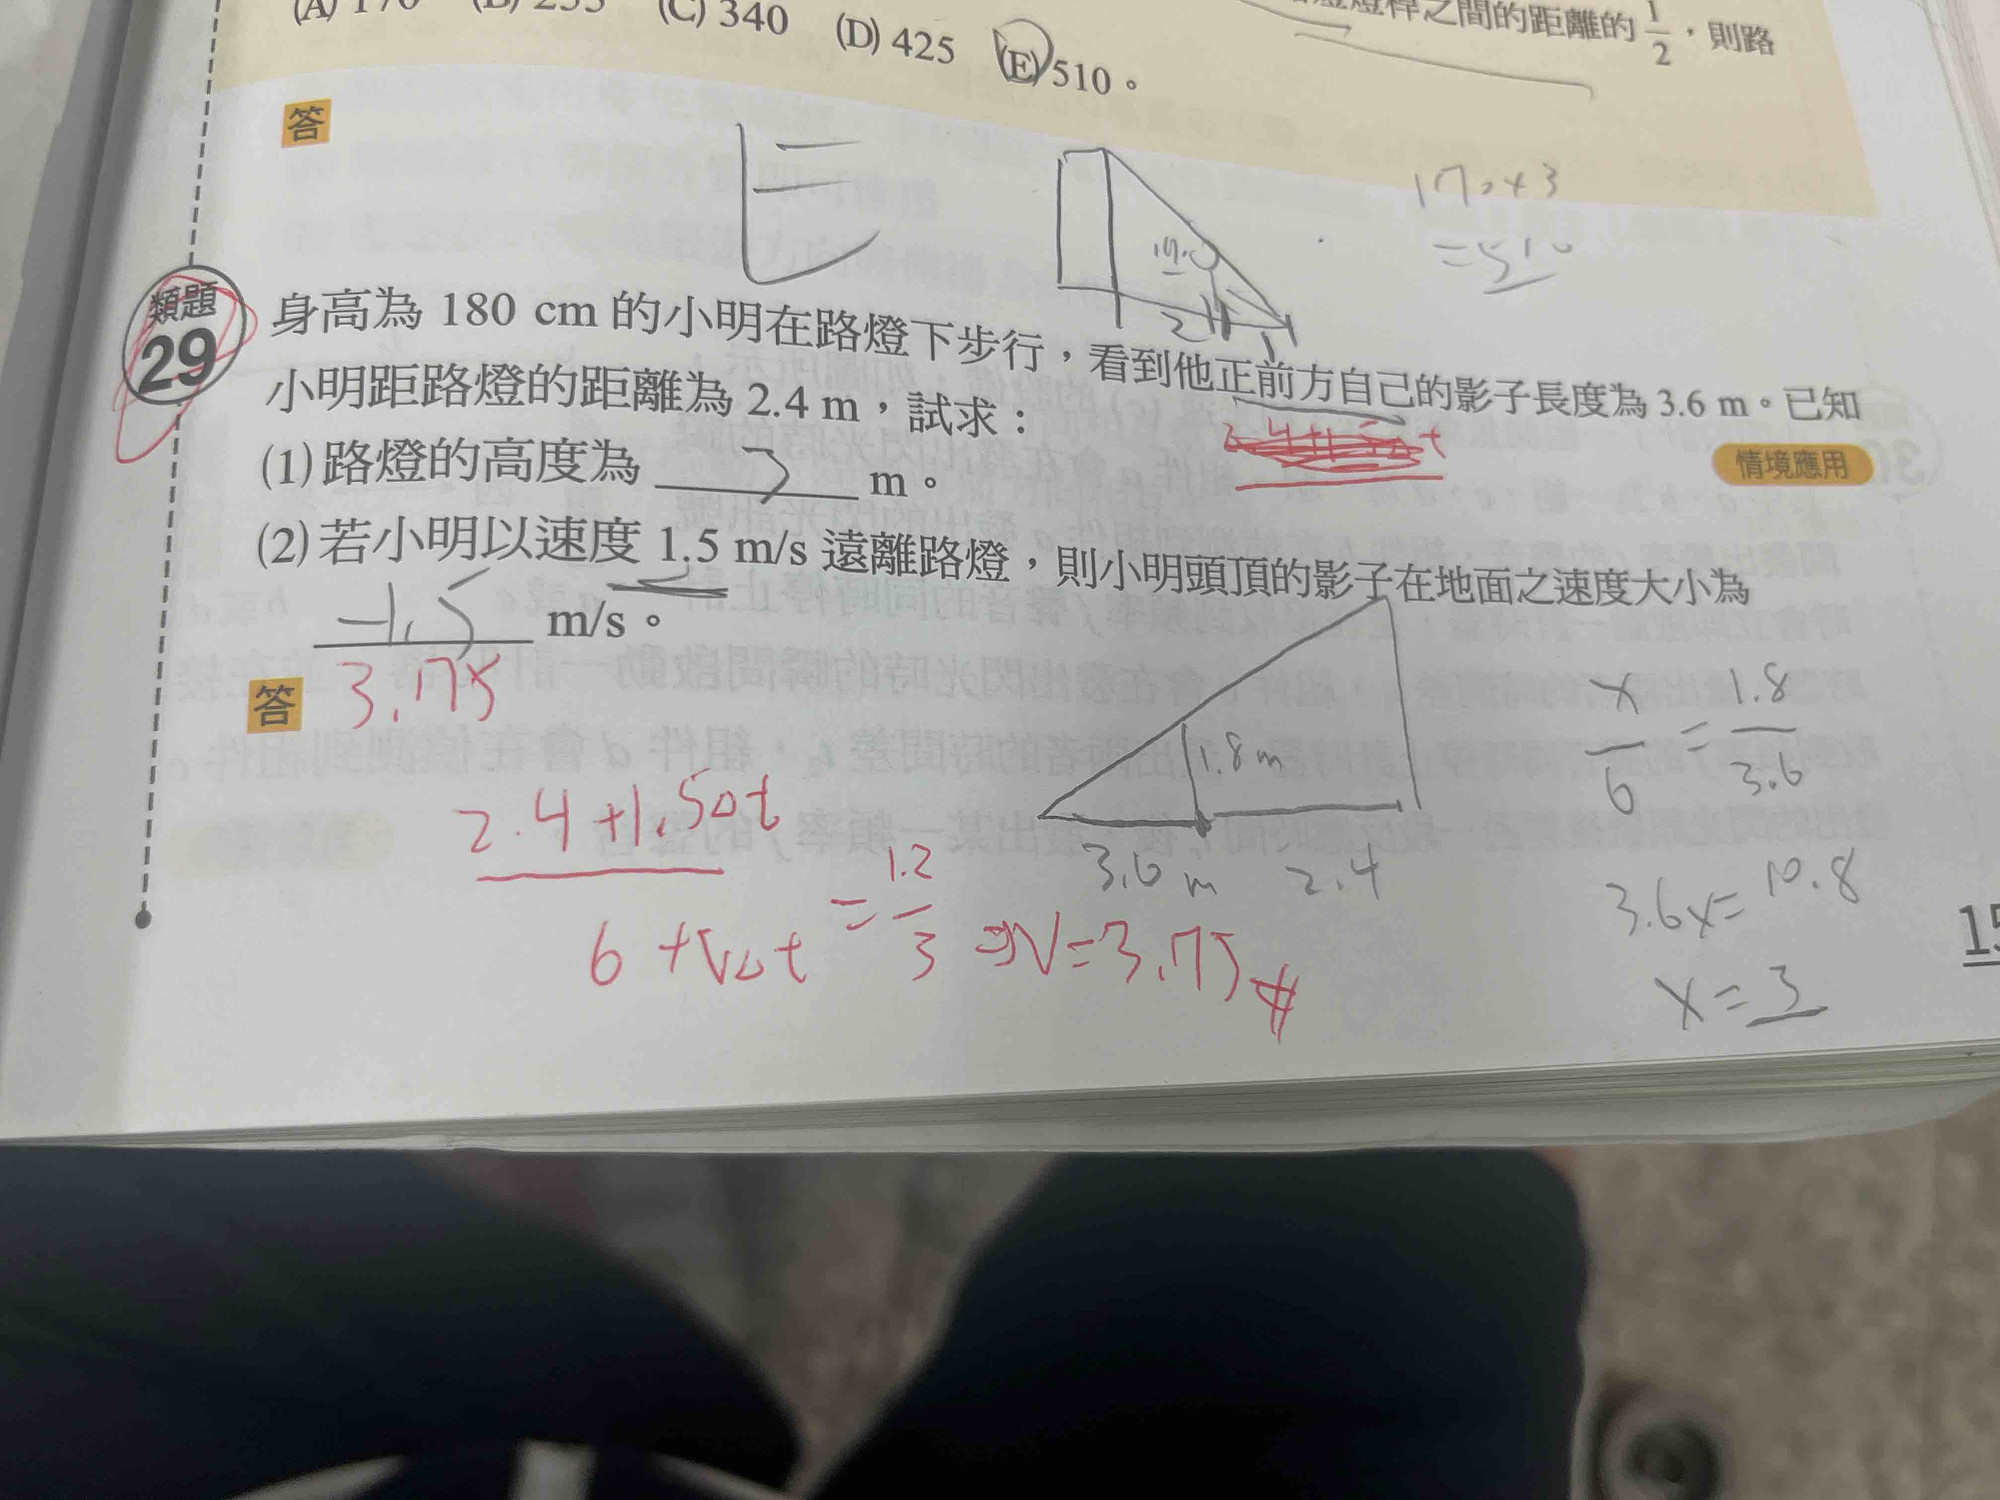 (A) 170 (B) 255 (C) 340 (D) 425 (E) 510。
燈桿之間的距離的 1/2,則路
答
170×3
=510
類題
29
身高為 180 cm 的小明在路燈下步行,看到他正前方自己的影子長度為 3.6 m。已知
小明距路燈的距離為 2.4 m,試求:
情境應用
(1) 路燈的高度為 3 m。
(2) 若小明以速度 1.5 m/s 遠離路燈,則小明頭頂的影子在地面之速度大小為
1.5 m/s。
答
3.75
1.8m
3.6m 2.4
x/6 = 1.8/3.6
3.6x=10.8
x=3
2.4+1.5△t / 6+V△t = 1.2/3 ⇒V=3.75#
15